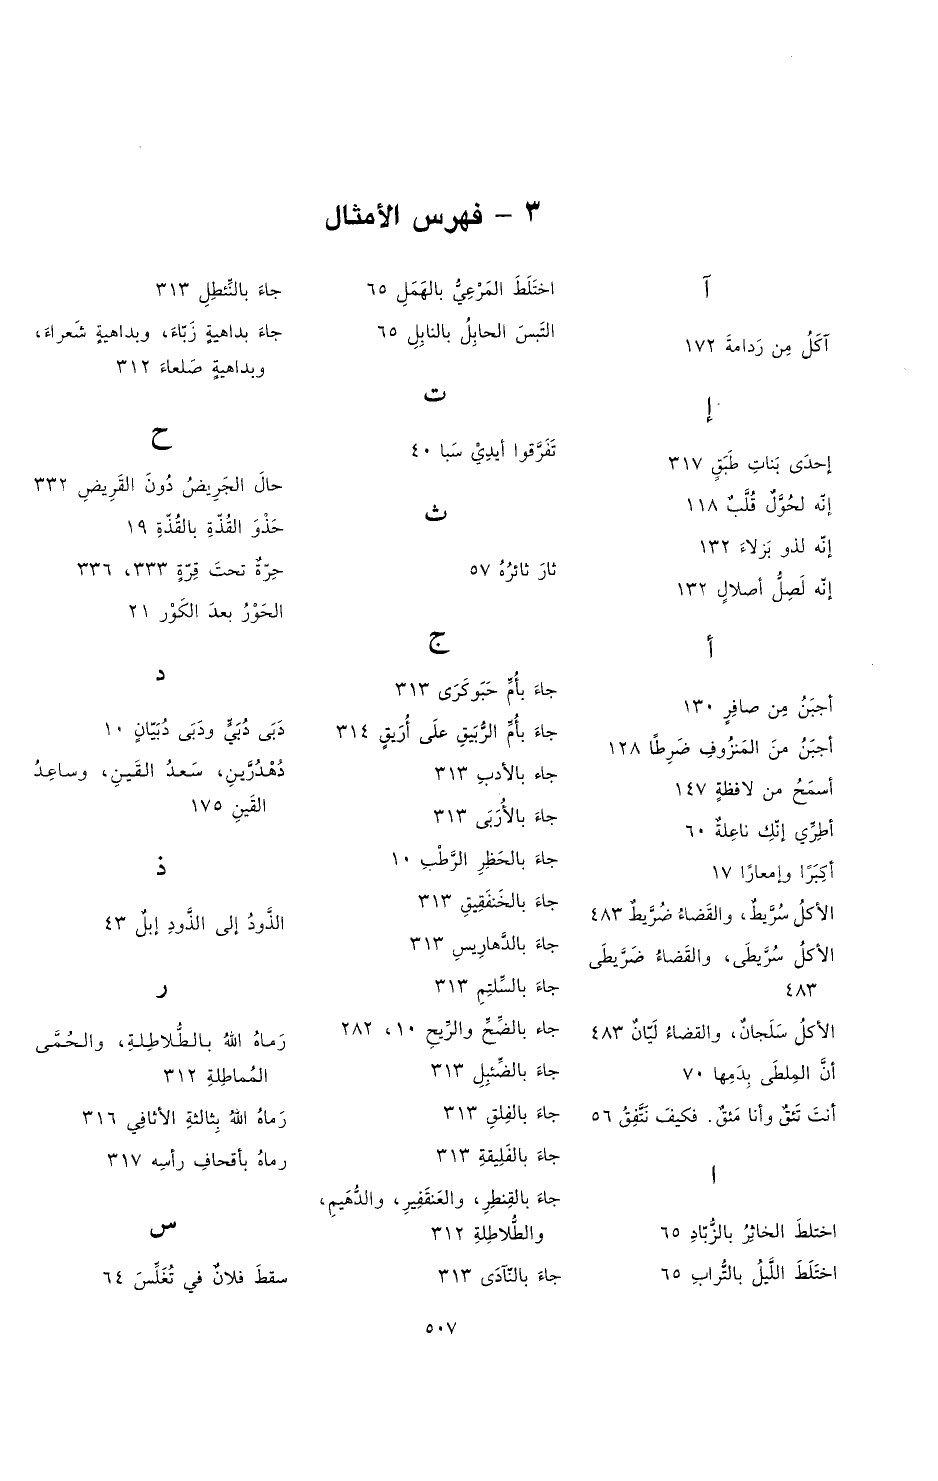 ٣ - فهرس الأمثال
آ
آكَلُ مِن رَدامةَ ١٧٢
إ
إحدَى بَناتِ طَبَقٍ ٣١٧
إنّه لحُوَّلٌ قُلَّبٌ ١١٨
إنّه لذو بَزلاءَ ١٣٢
إنّه لَصِلُّ أصلالٍ ١٣٢
أ
أجبَنُ مِن صافِرٍ ١٣٠
أجبَنُ منَ المَنزُوفِ ضَرِطًا ١٢٨
أسمَحُ من لافظةٍ ١٤٧
أطِرِّي إنّكِ ناعِلةٌ ٦٠
أكِبَرًا وإمعارًا ١٧
الأكلُ سُرَّيطٌ، والقَضاءُ ضُرَّيطٌ ٤٨٣
الأكلُ سُرَّيطَى، والقَضاءُ ضَرَّيطَى
٤٨٣
الأكلُ سَلَجانٌ، والقضاءُ لَيّانٌ ٤٨٣
أنَّ المِلطَى بِدَمِها ٧٠
أنتَ تَئقٌ وأنا مَئقٌ. فكيفَ نَتَّفِقُ ٥٦
ا
اختلطَ الخاثِرُ بالزُّبّادِ ٦٥
اختَلَطَ اللَّيلُ بالتُّرابِ ٦٥
اختَلَطَ المَرْعِيُّ بالهَمَلِ ٦٥
التَبسَ الحابِلُ بالنابِلِ ٦٥
ت
تَفَرَّقوا أيدِيْ سَبا ٤٠
ث
ثارَ ثائرُهُ ٥٧
ج
جاءَ بأُمِّ حَبَوكَرَى ٣١٣
جاءَ بأُمِّ الرُّبَيقِ علَى أُرَيقٍ ٣١٤
جاء بالأدبِ ٣١٣
جاءَ بالأُرَبَى ٣١٣
جاءَ بالحَظِرِ الرَّطْبِ ١٠
جاءَ بالخَنفَقِيقِ ٣١٣
جاءَ بالدَّهارِيسِ ٣١٣
جاءَ بالسِّلتِمِ ٣١٣
جاء بالضِّحِّ والرِّيحِ ١٠، ٢٨٢
جاءَ بالضِّئبِلِ ٣١٣
جاءَ بالفِلقِ ٣١٣
جاءَ بالفَلِيقةِ ٣١٣
جاءَ بالقِنطِرِ، والعَنقَفِيرِ، والدُّهَيمِ،
والطُّلاطِلةِ ٣١٢
جاءَ بالنّآدَى ٣١٣
جاءَ بالنِّئطِلِ ٣١٣
جاءَ بداهيةٍ زَبّاءَ، وبداهيةٍ شَعراءَ،
وبداهيةٍ صَلعاءَ ٣١٢
ح
حالَ الجَرِيضُ دُونَ القَرِيضِ ٣٣٢
حَذْوَ القُذّةِ بالقُذّةِ ١٩
حِرّةٌ تحتَ قِرّةٍ ٣٣٣، ٣٣٦
الحَوْرُ بعدَ الكَوْر ٢١
د
دَبَى دُبَيٍّ ودَبَى دُبَيّانٍ ١٠
دُهْدُرَّينِ، سَعدُ القَينِ، وساعِدُ
القَينِ ١٧٥
ذ
الذَّودُ إلى الذَّودِ إبلٌ ٤٣
ر
رَماهُ اللهُ بالطُّلاطِلةِ، والحُمَّى
المُماطِلةِ ٣١٢
رَماهُ اللهُ بِثالثةِ الأثافِي ٣١٦
رماهُ بأقحافِ رأسِه ٣١٧
س
سقطَ فلانٌ في تُغَلِّسَ ٦٤
٥٠٧